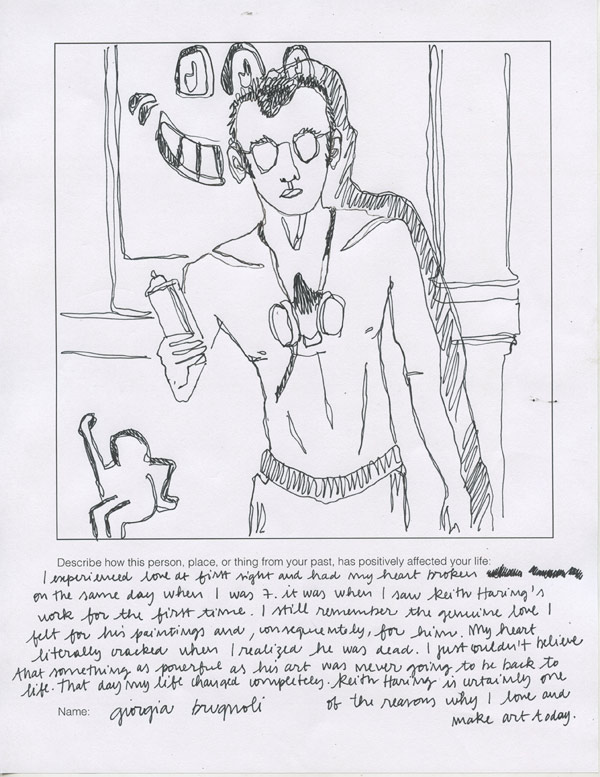 Describe how this person, place, or thing from your past, has positively affected your life:
I experienced love at first sight and had my heart broken
on the same day when I was 7. it was when I saw Keith Haring's
work for the first time. I still remember the genuine love I
felt for his paintings and, consequentely, for him. My heart
literally cracked when I realized he was dead. I just couldn't believe
that something as powerful as his art was never going to be back to
life. That day my life changed completely. Keith Haring is certainly one
of the reasons why I love and
make art today.
Name: giorgia brugnoli